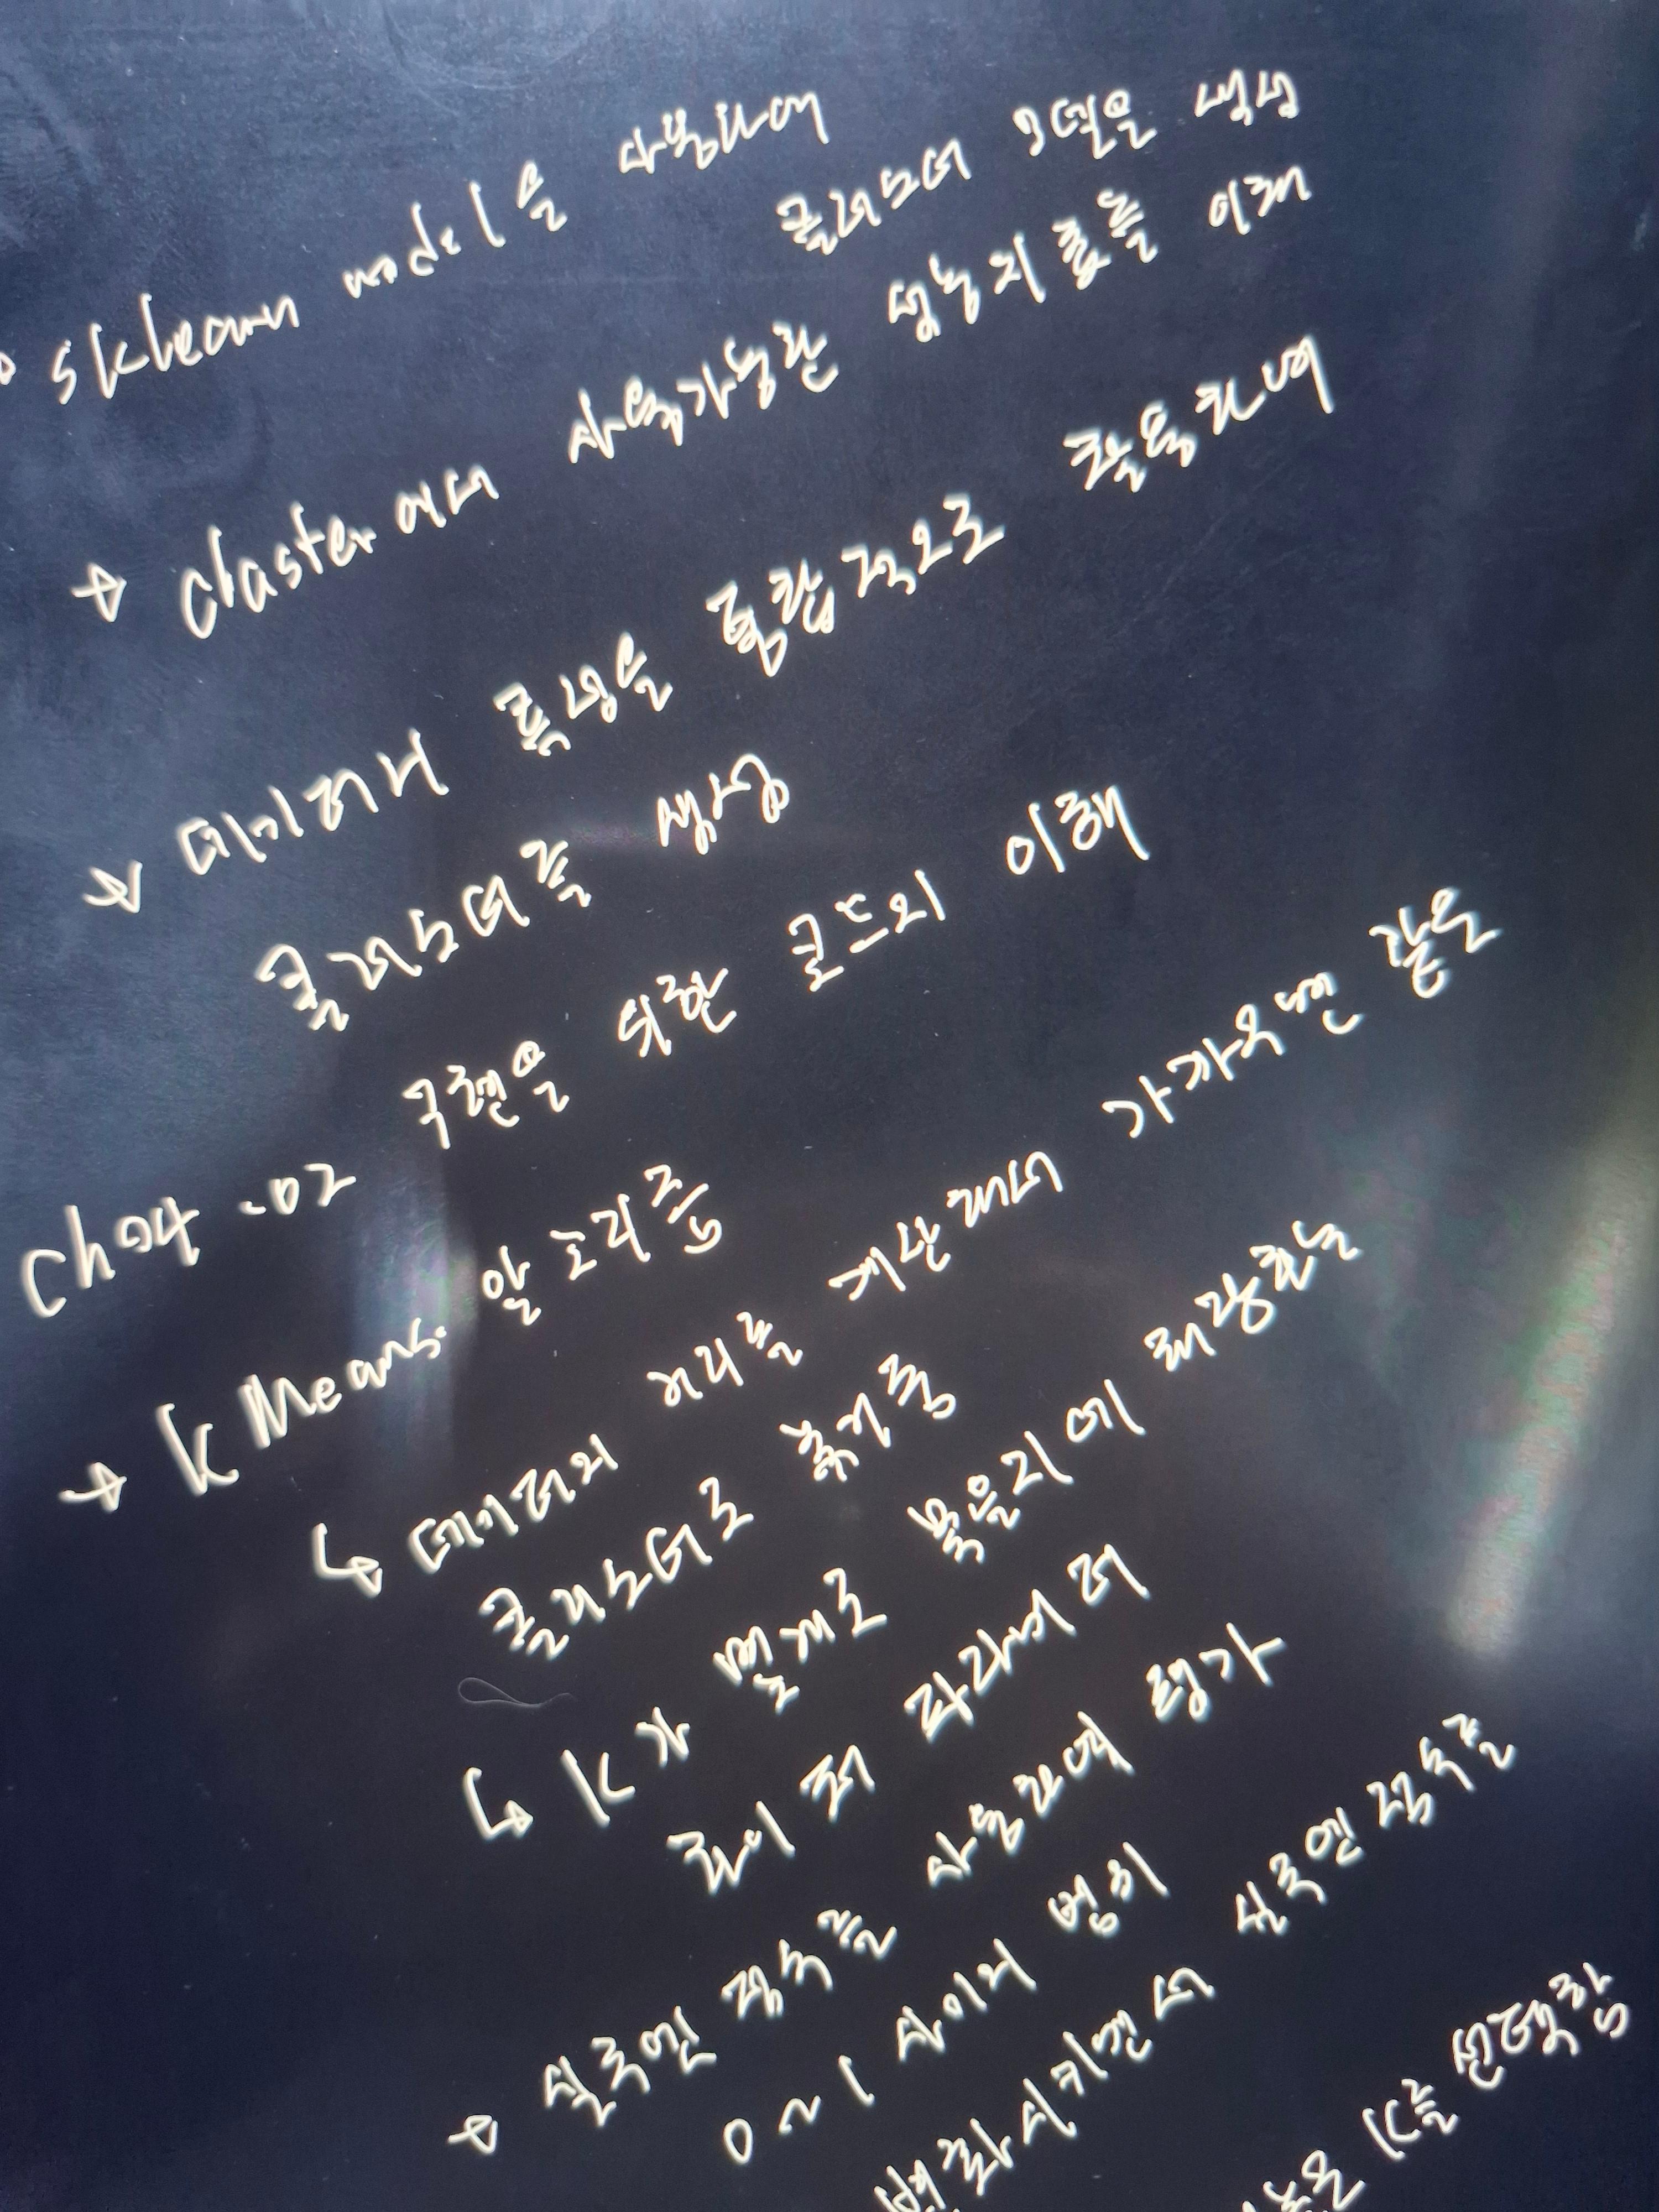 sklearn model을 사용하여
클러스터 모델을 생성
→ claster에서 사용가능한 성능지표를 이해
→ 데이터의 특성을 통합적으로 활용하여
클러스터를 생성
Ch04-02 구현을 위한 코드의 이해
→ K Means. 알고리즘
↳ 데이터의 거리를 계산해서 가까우면 같은
클러스터로 묶어줌
↳ K가 몇개로 묶을지에 해당하는
하이퍼 파라미터
→ 실루엣 점수를 사용하여 평가
0~1 사이의 범위
변화시키면서 실루엣 점수를
높은 K를 선택함